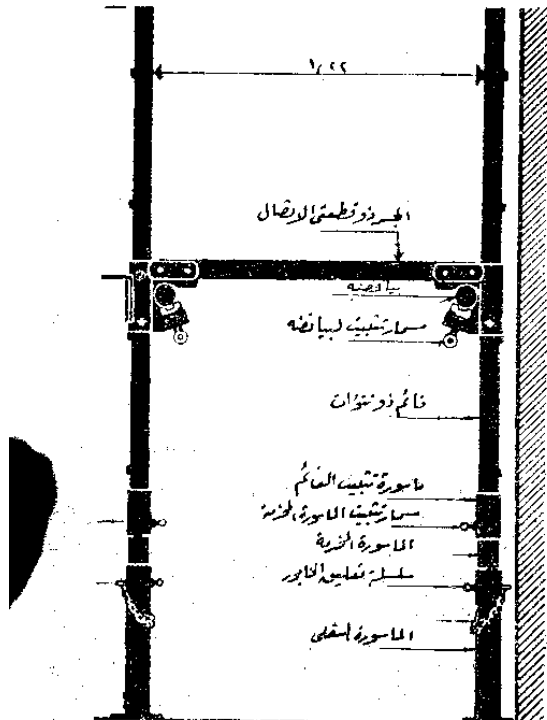 ١,٢٢
الجسر ذو قطعتى الاتصال
بياضه
مسمار تثبيت لبياضه
قائم ذو نتوءات
ماسورة تثبيت القائم
مسمار تثبيت الماسورة المخرمة
الماسورة المخرمة
سلسلة تعليق الخابور
الماسورة السفلى